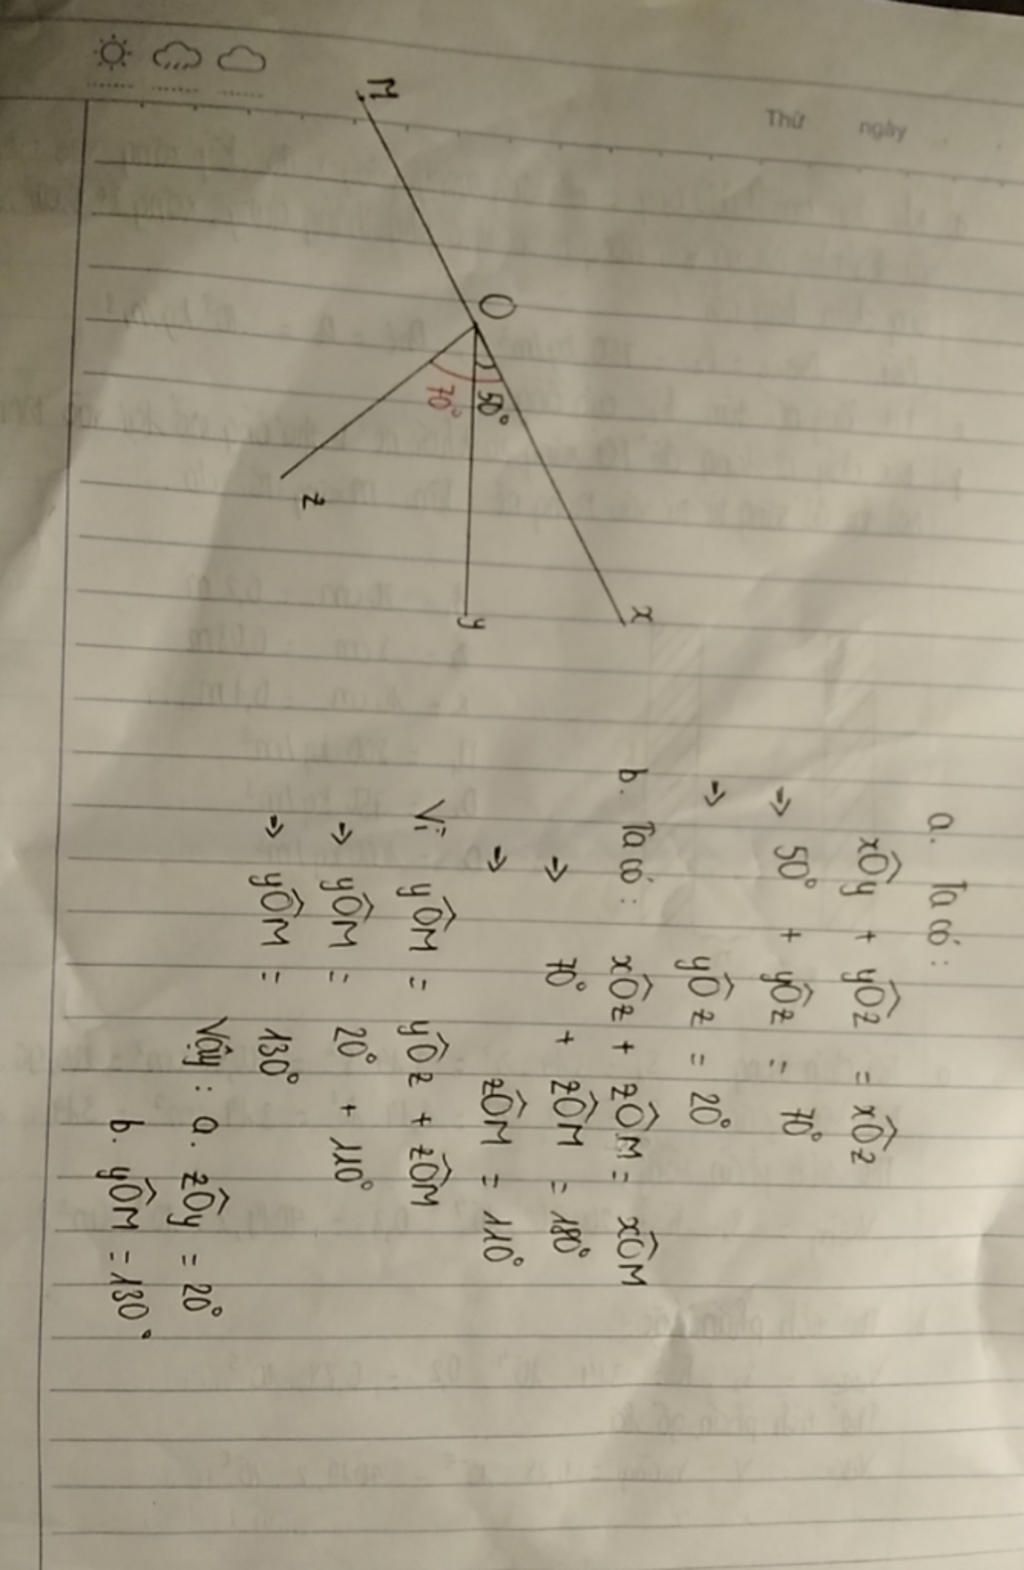 Thứ ngày
M
O
50°
70°
x
y
z
a. Ta có:
xÔy + yÔz = xÔz
=> 50° + yÔz = 70°
=> yÔz = 20°
b. Ta có: xÔz + zÔM = xÔM
=> 70° + zÔM = 180°
=> zÔM = 110°
Vì yÔM = yÔz + zÔM
=> yÔM = 20° + 110°
=> yÔM = 130°
Vậy: a. zÔy = 20°
b. yÔM = 130°